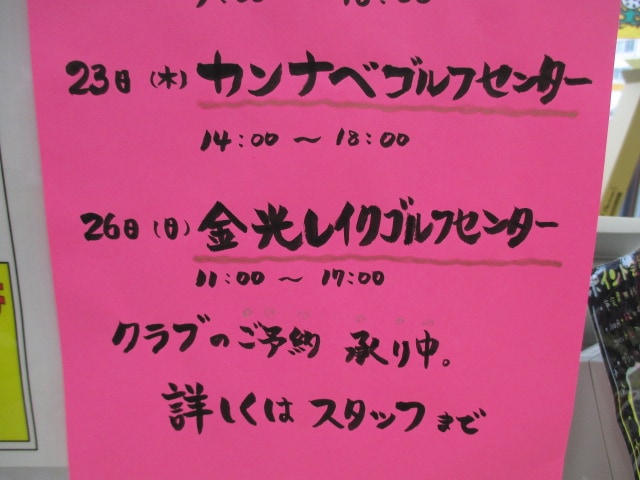 23日(木) カンナベゴルフセンター
14:00 ～ 18:00
26日(日) 金光レイクゴルフセンター
11:00 ～ 17:00
クラブのご予約 承り中。
詳しくは スタッフまで
ポイント